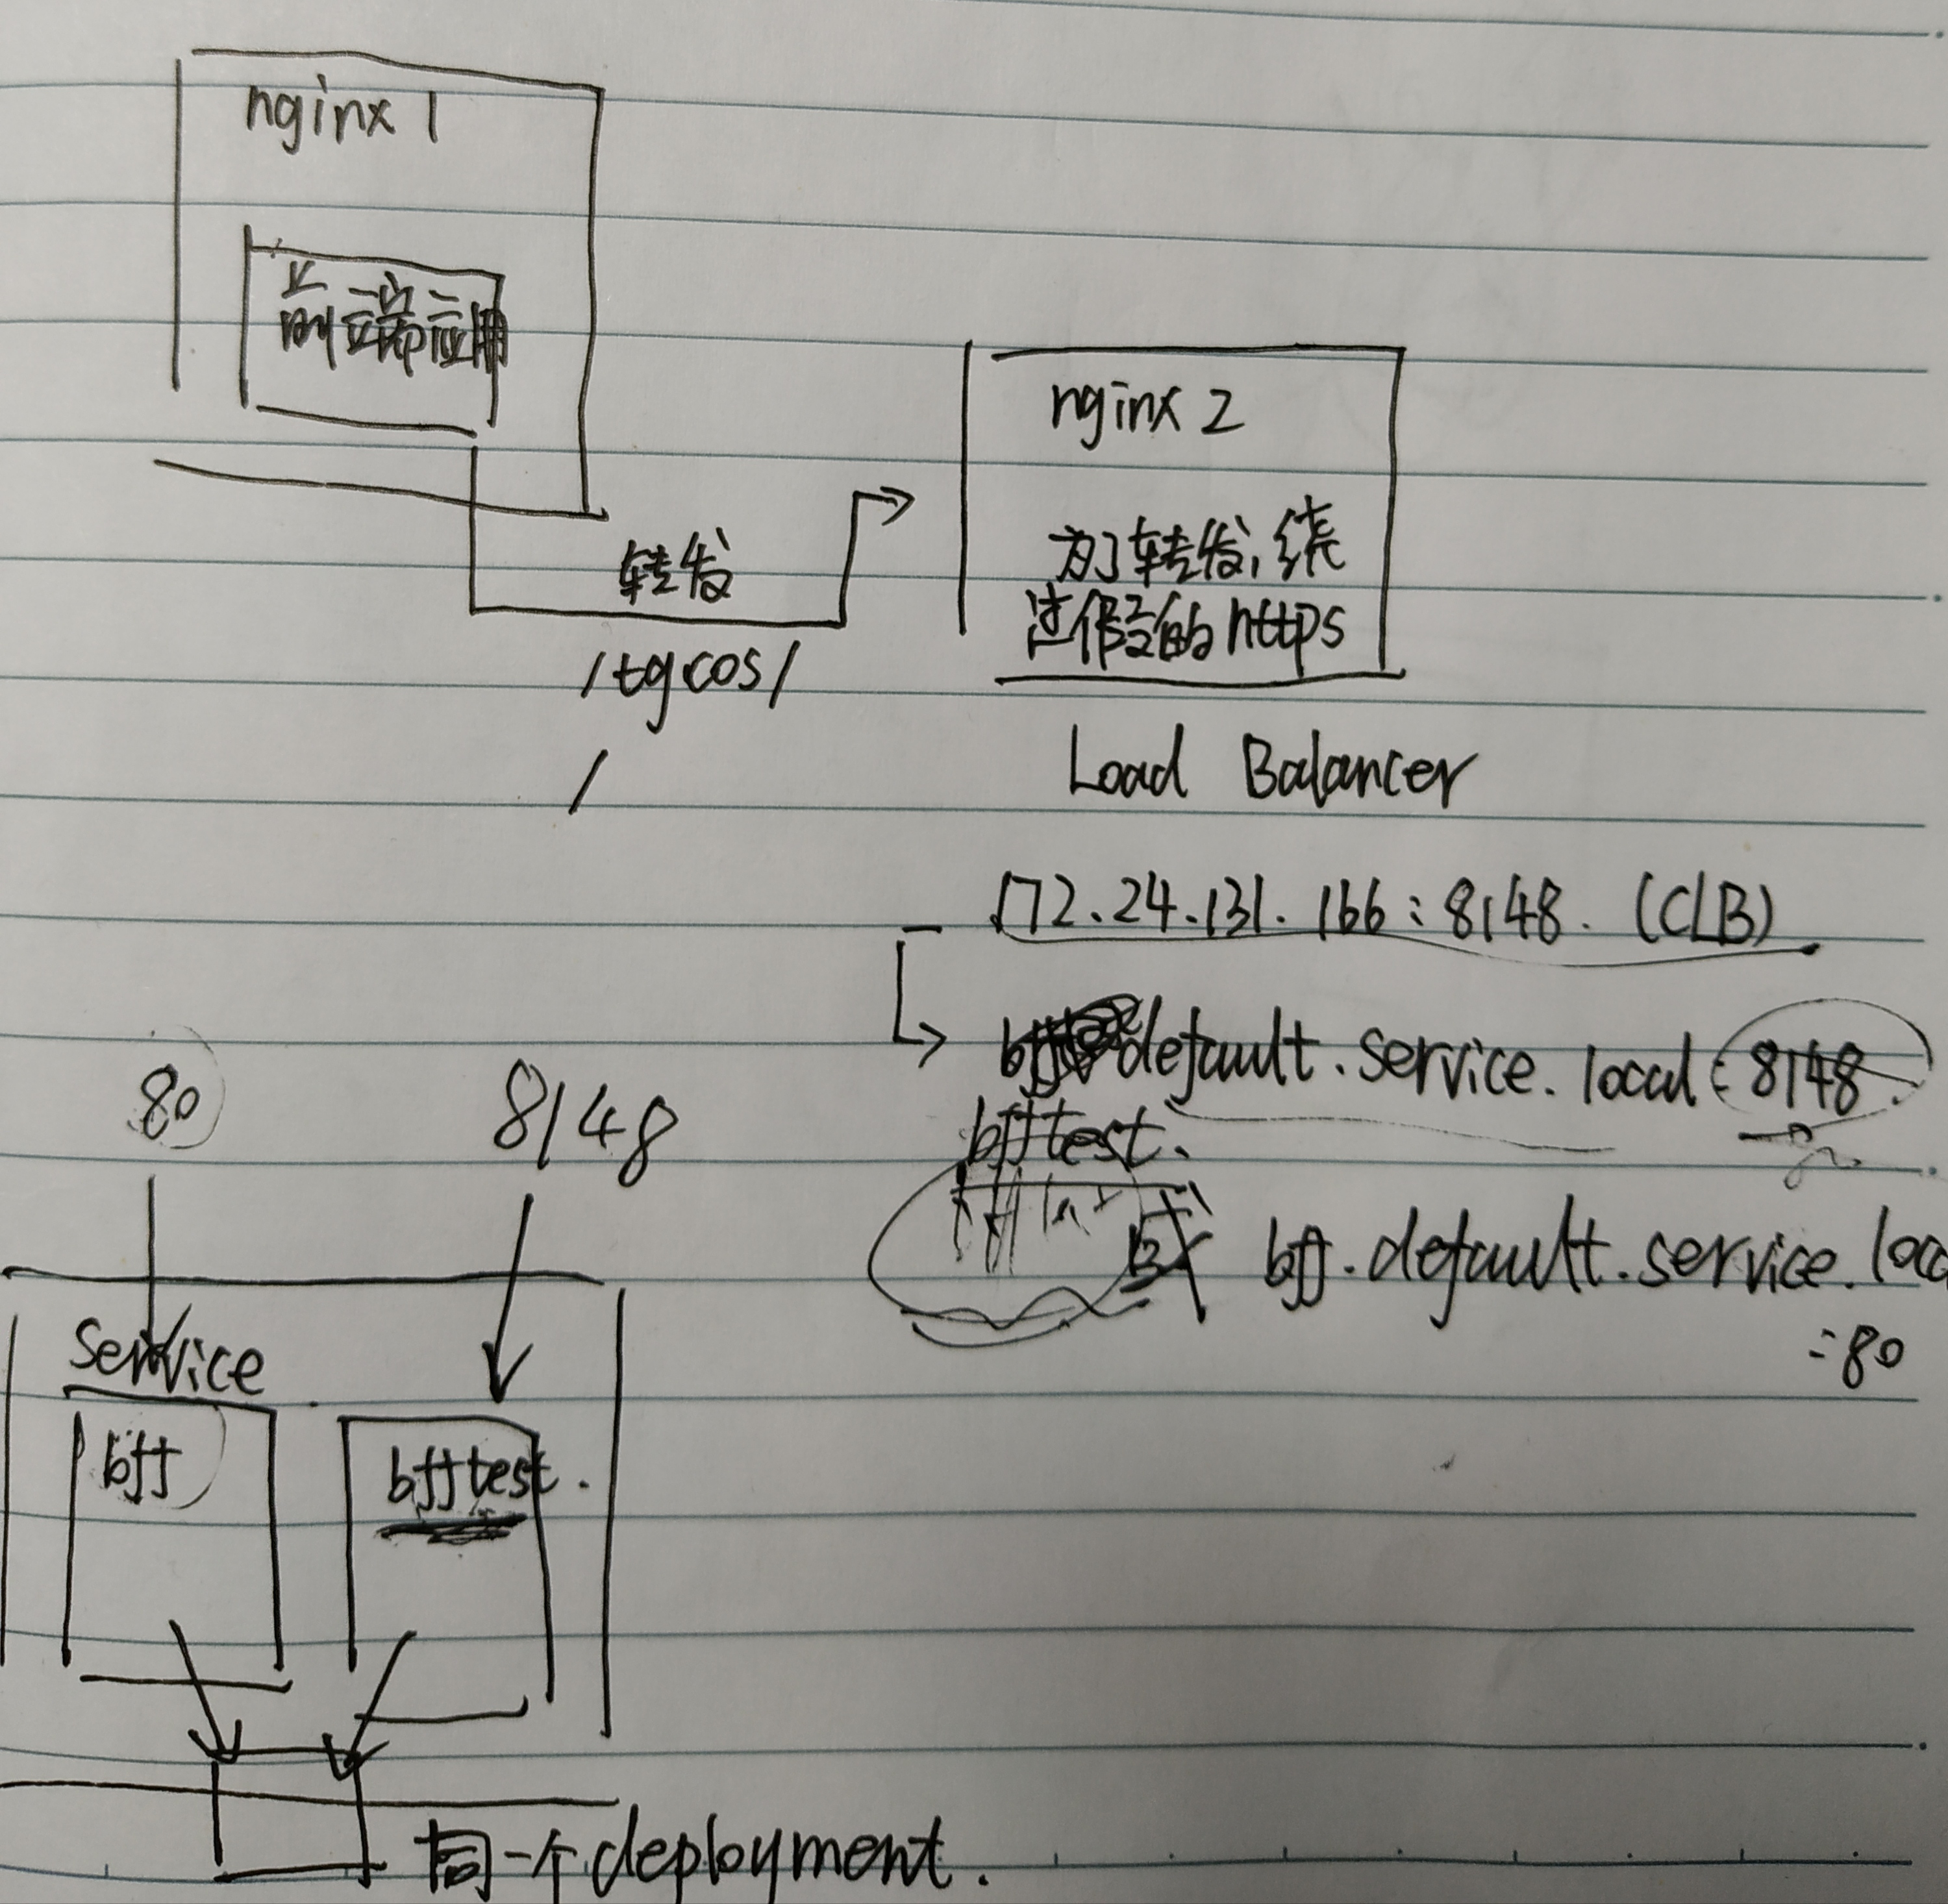 nginx 1
前端应用
转发
/tgcos/
/
nginx 2
为了转发,绕
过假的https
Load Balancer
172.24.131.166:8148. (CLB)
default.service.local:8148.
bfftest.
或 bff.default.service.loc
:80
80
8148
Service
bff
bfftest.
同一个deployment.